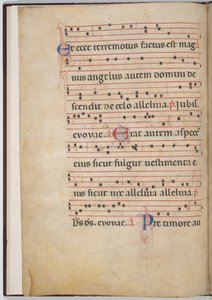 Et ecce terremotus factus est mag
nus angelus autem domini de
scendit de celo alleluia. p̄ Jubil.
evovae. a Erat autem aspect
eius sicut fulgur vestimenta e
ius sicut nix alleluia alleluia. p̄
Ds ds. evovae. a Pre timore au